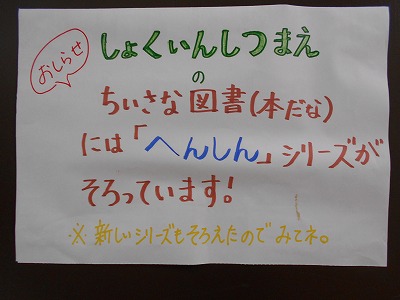 おしらせ
しょくいんしつまえ
の
ちいさな図書(本だな)
には「へんしん」シリーズが
そろっています!
※新しいシリーズもそろえたのでみてネ。